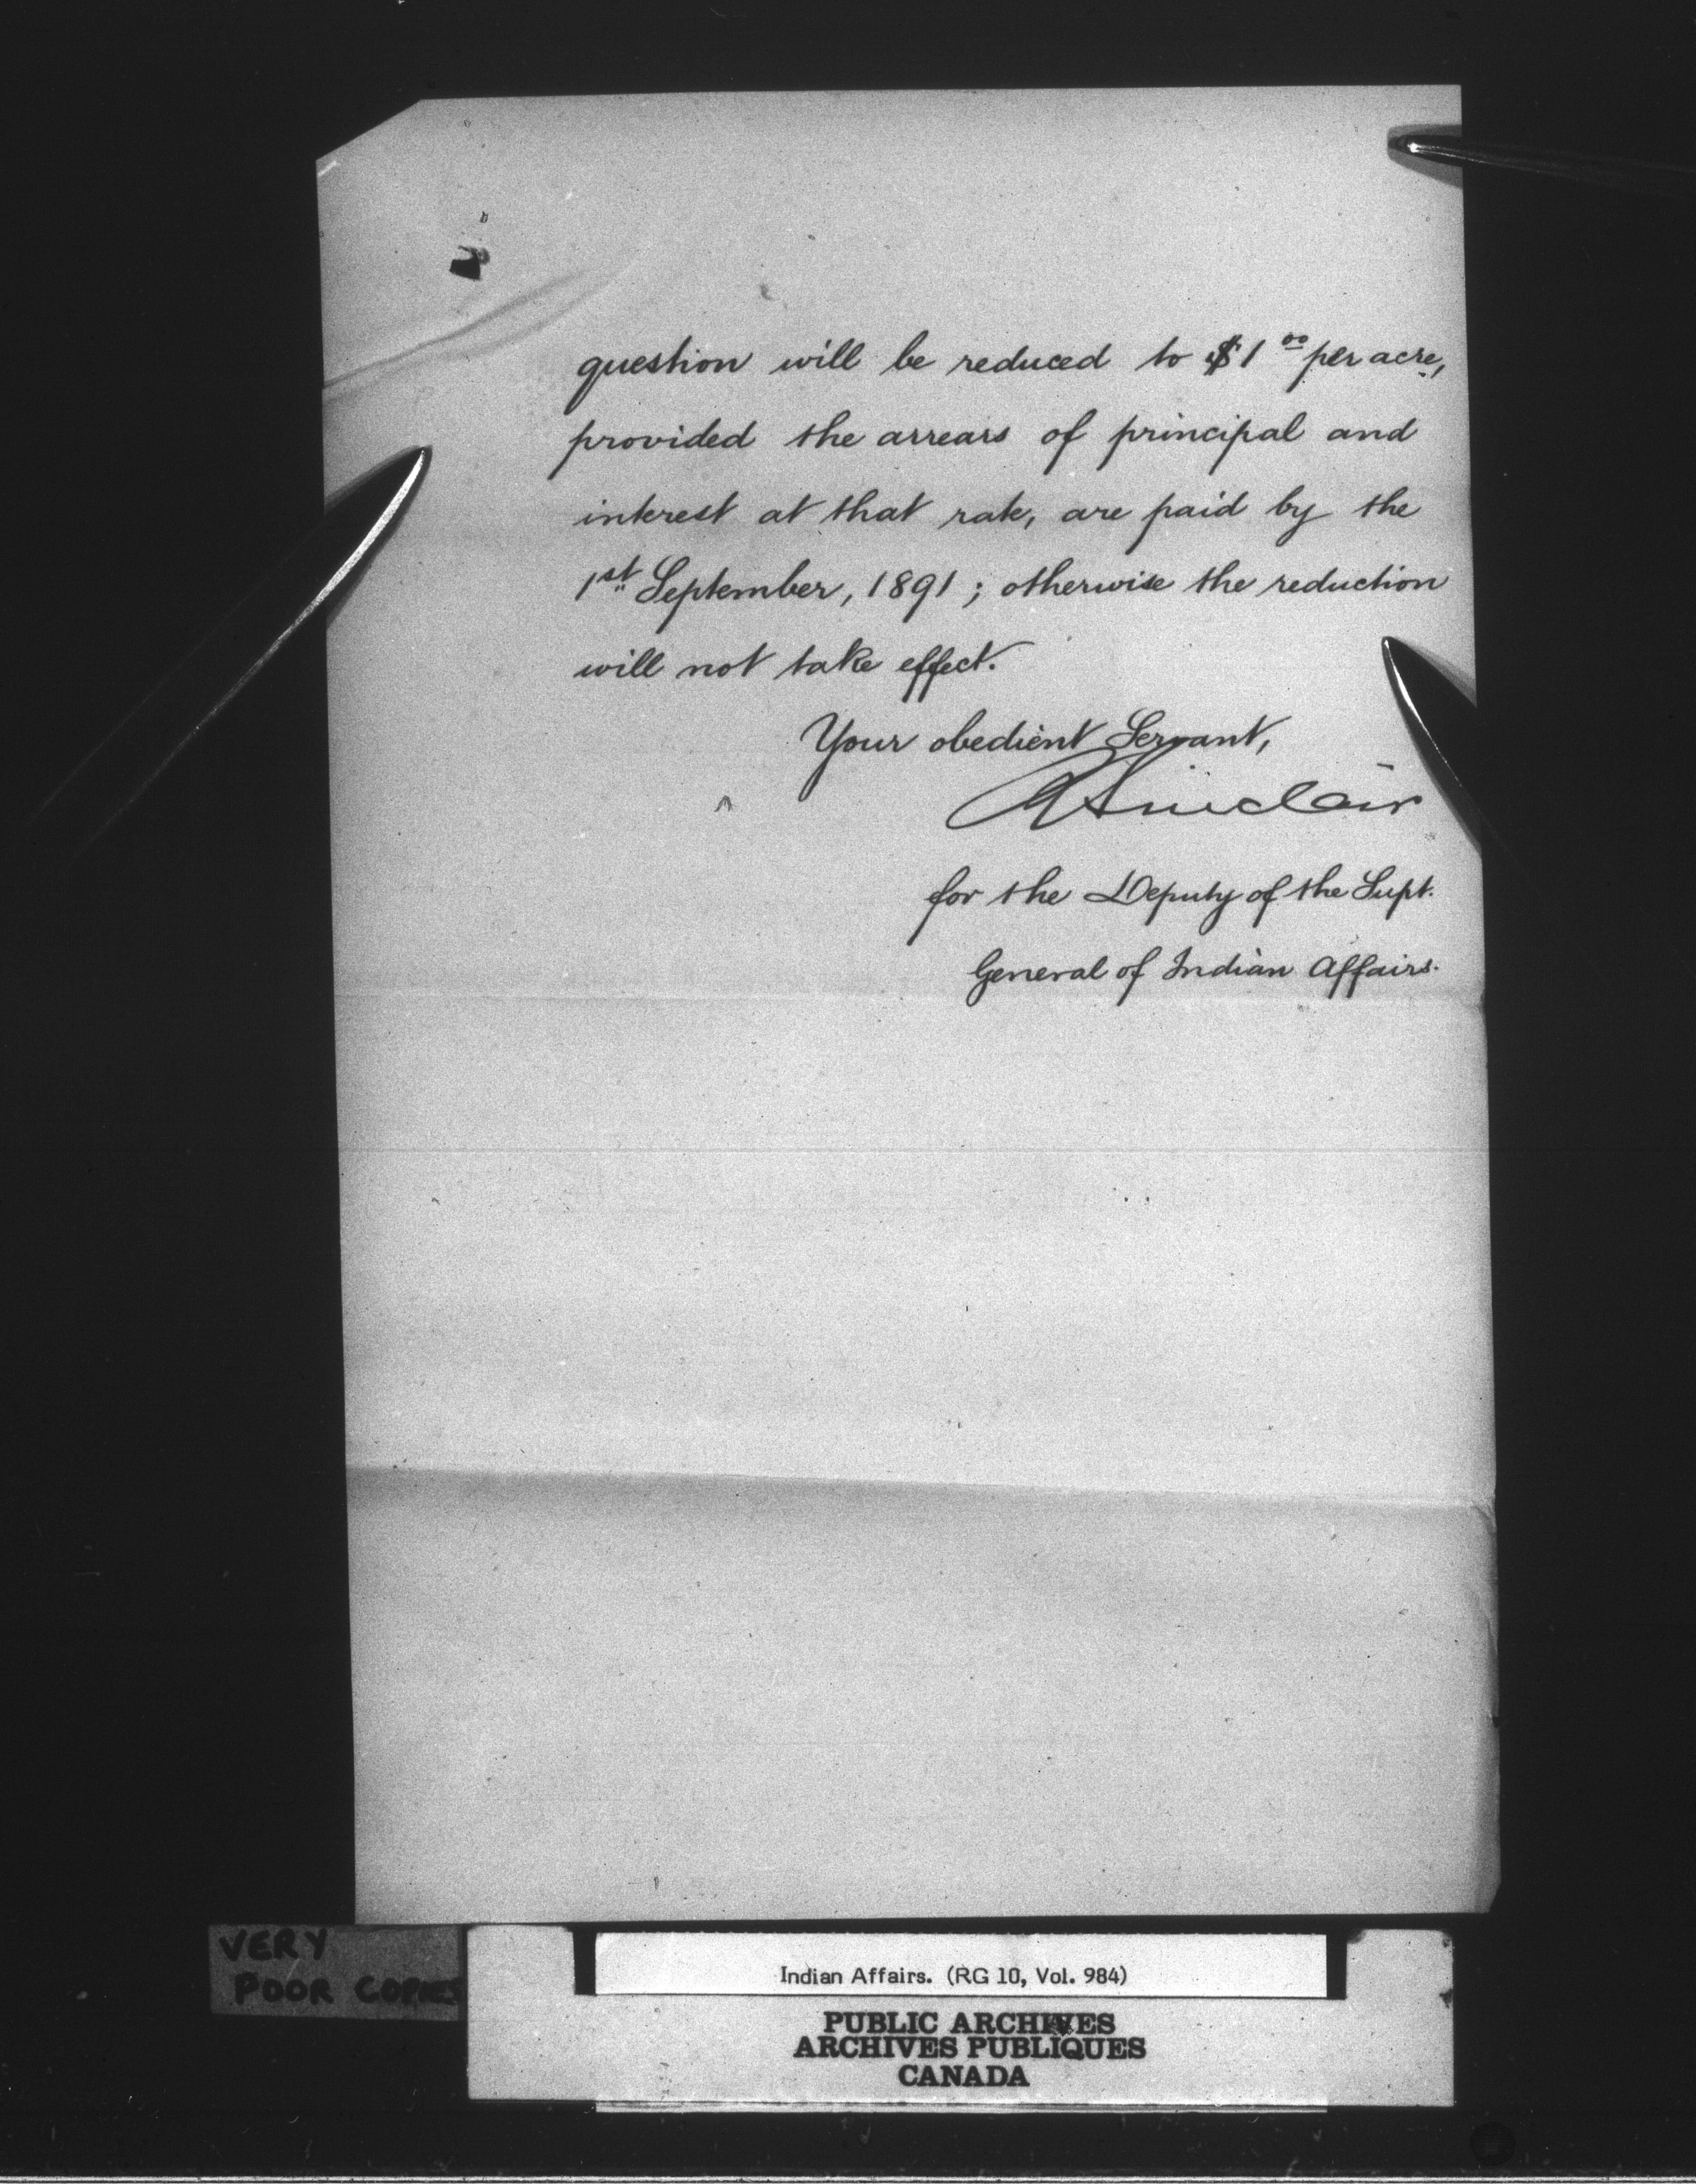 question will be reduced to $1 00 per acre,
provided the arrears of principal and
interest at that rate, are paid by the
1st September, 1891; otherwise the reduction
will not take effect.
Your obedient Servant,
Sinclair
for the Deputy of the Supt.
General of Indian Affairs.
VERY
POOR COPIES
Indian Affairs. (RG 10, Vol. 984)
PUBLIC ARCHIVES
ARCHIVES PUBLIQUES
CANADA